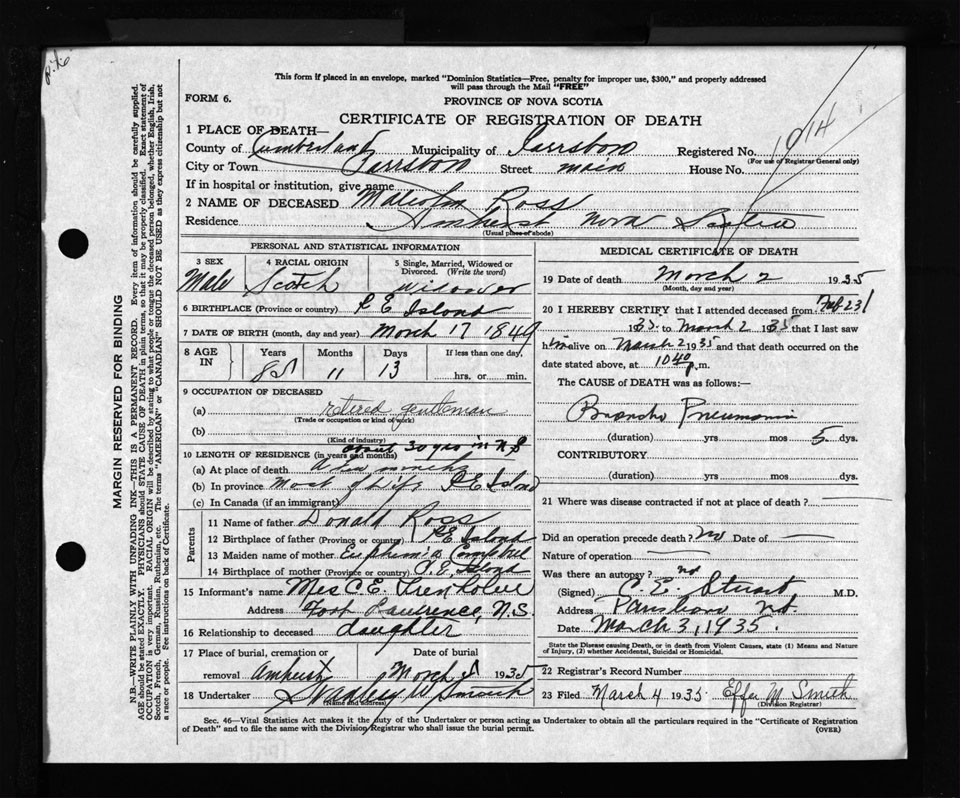 This form if placed in an envelope, marked "Dominion Statistics—Free, penalty for improper use, $300," and properly addressed
will pass through the Mail "FREE"
FORM 6.
PROVINCE OF NOVA SCOTIA
CERTIFICATE OF REGISTRATION OF DEATH
1 PLACE OF DEATH—
County of Cumberland Municipality of Parrsboro Registered No.
(For use of Registrar General only)
City or Town Parrsboro Street main House No.
If in hospital or institution, give name
2 NAME OF DECEASED Malcolm Ross
Residence Amherst Nova Scotia
(Usual place of abode)
PERSONAL AND STATISTICAL INFORMATION
3 SEX 4 RACIAL ORIGIN 5 Single, Married, Widowed or Divorced. (Write the word)
Male Scotch Widower
6 BIRTHPLACE (Province or country) P E Island
7 DATE OF BIRTH (month, day and year) March 17 1849
8 AGE IN Years Months Days If less than one day,
85 11 13 hrs. or min.
9 OCCUPATION OF DECEASED
(a) retired gentleman
(Trade or occupation or kind of work)
(b)
(Kind of industry)
about 30 yrs in N S
10 LENGTH OF RESIDENCE (in years and months)
(a) At place of death A few months
(b) In province Most of life P E Island
(c) In Canada (if an immigrant)
Parents
11 Name of father Donald Ross
12 Birthplace of father (Province or country) P E Island
13 Maiden name of mother Euphemia Campbell
14 Birthplace of mother (Province or country) P. E. Island
15 Informant's name Mrs C. E. Trenholm
Address Port Lawrence, N.S.
16 Relationship to deceased daughter
17 Place of burial, cremation or Date of burial
removal Amherst March 1935
18 Undertaker W Smith
(Name and address)
MEDICAL CERTIFICATE OF DEATH
19 Date of death March 2 1935
(Month, day and year)
20 I HEREBY CERTIFY that I attended deceased from Feb 23
1935 to March 2 1935 that I last saw
him alive on March 2 1935 and that death occurred on the
date stated above, at 10 40 p.m.
The CAUSE of DEATH was as follows:—
Broncho Pneumonia
(duration) yrs mos 5 dys.
CONTRIBUTORY
(duration) yrs mos dys.
21 Where was disease contracted if not at place of death?
Did an operation precede death? No Date of
Nature of operation
Was there an autopsy? no
(Signed) C. E. Stuart M.D.
Address Parrsboro N.S.
Date March 3, 1935.
State the Disease causing Death, or in death from Violent Causes, state (1) Means and
Nature of Injury, (2) whether Accidental, Suicidal or Homicidal.
22 Registrar's Record Number
23 Filed March 4 1935 Effie M Smith
(Division Registrar)
Sec. 46—Vital Statistics Act makes it the duty of the Undertaker or person acting as Undertaker to obtain all the particulars required in the "Certificate of Registration
of Death" and to file the same with the Division Registrar who shall issue the burial permit. (OVER)
MARGIN RESERVED FOR BINDING
N.B.—WRITE PLAINLY WITH UNFADING INK—THIS IS A PERMANENT RECORD. Every item of information should be carefully supplied.
AGE should be stated EXACTLY. PHYSICIANS should STATE CAUSE OF DEATH in plain terms, so that it may be properly classified. Exact statement of
OCCUPATION is very important. RACIAL ORIGIN will be described by stating to what people or tongue the deceased person belonged, whether English, Irish,
Scotch, French, German, Russian, Ruthenian, etc. The terms "AMERICAN" or "CANADIAN" SHOULD NOT BE USED as they express citizenship but not
a race or people. See instructions on back of Certificate.